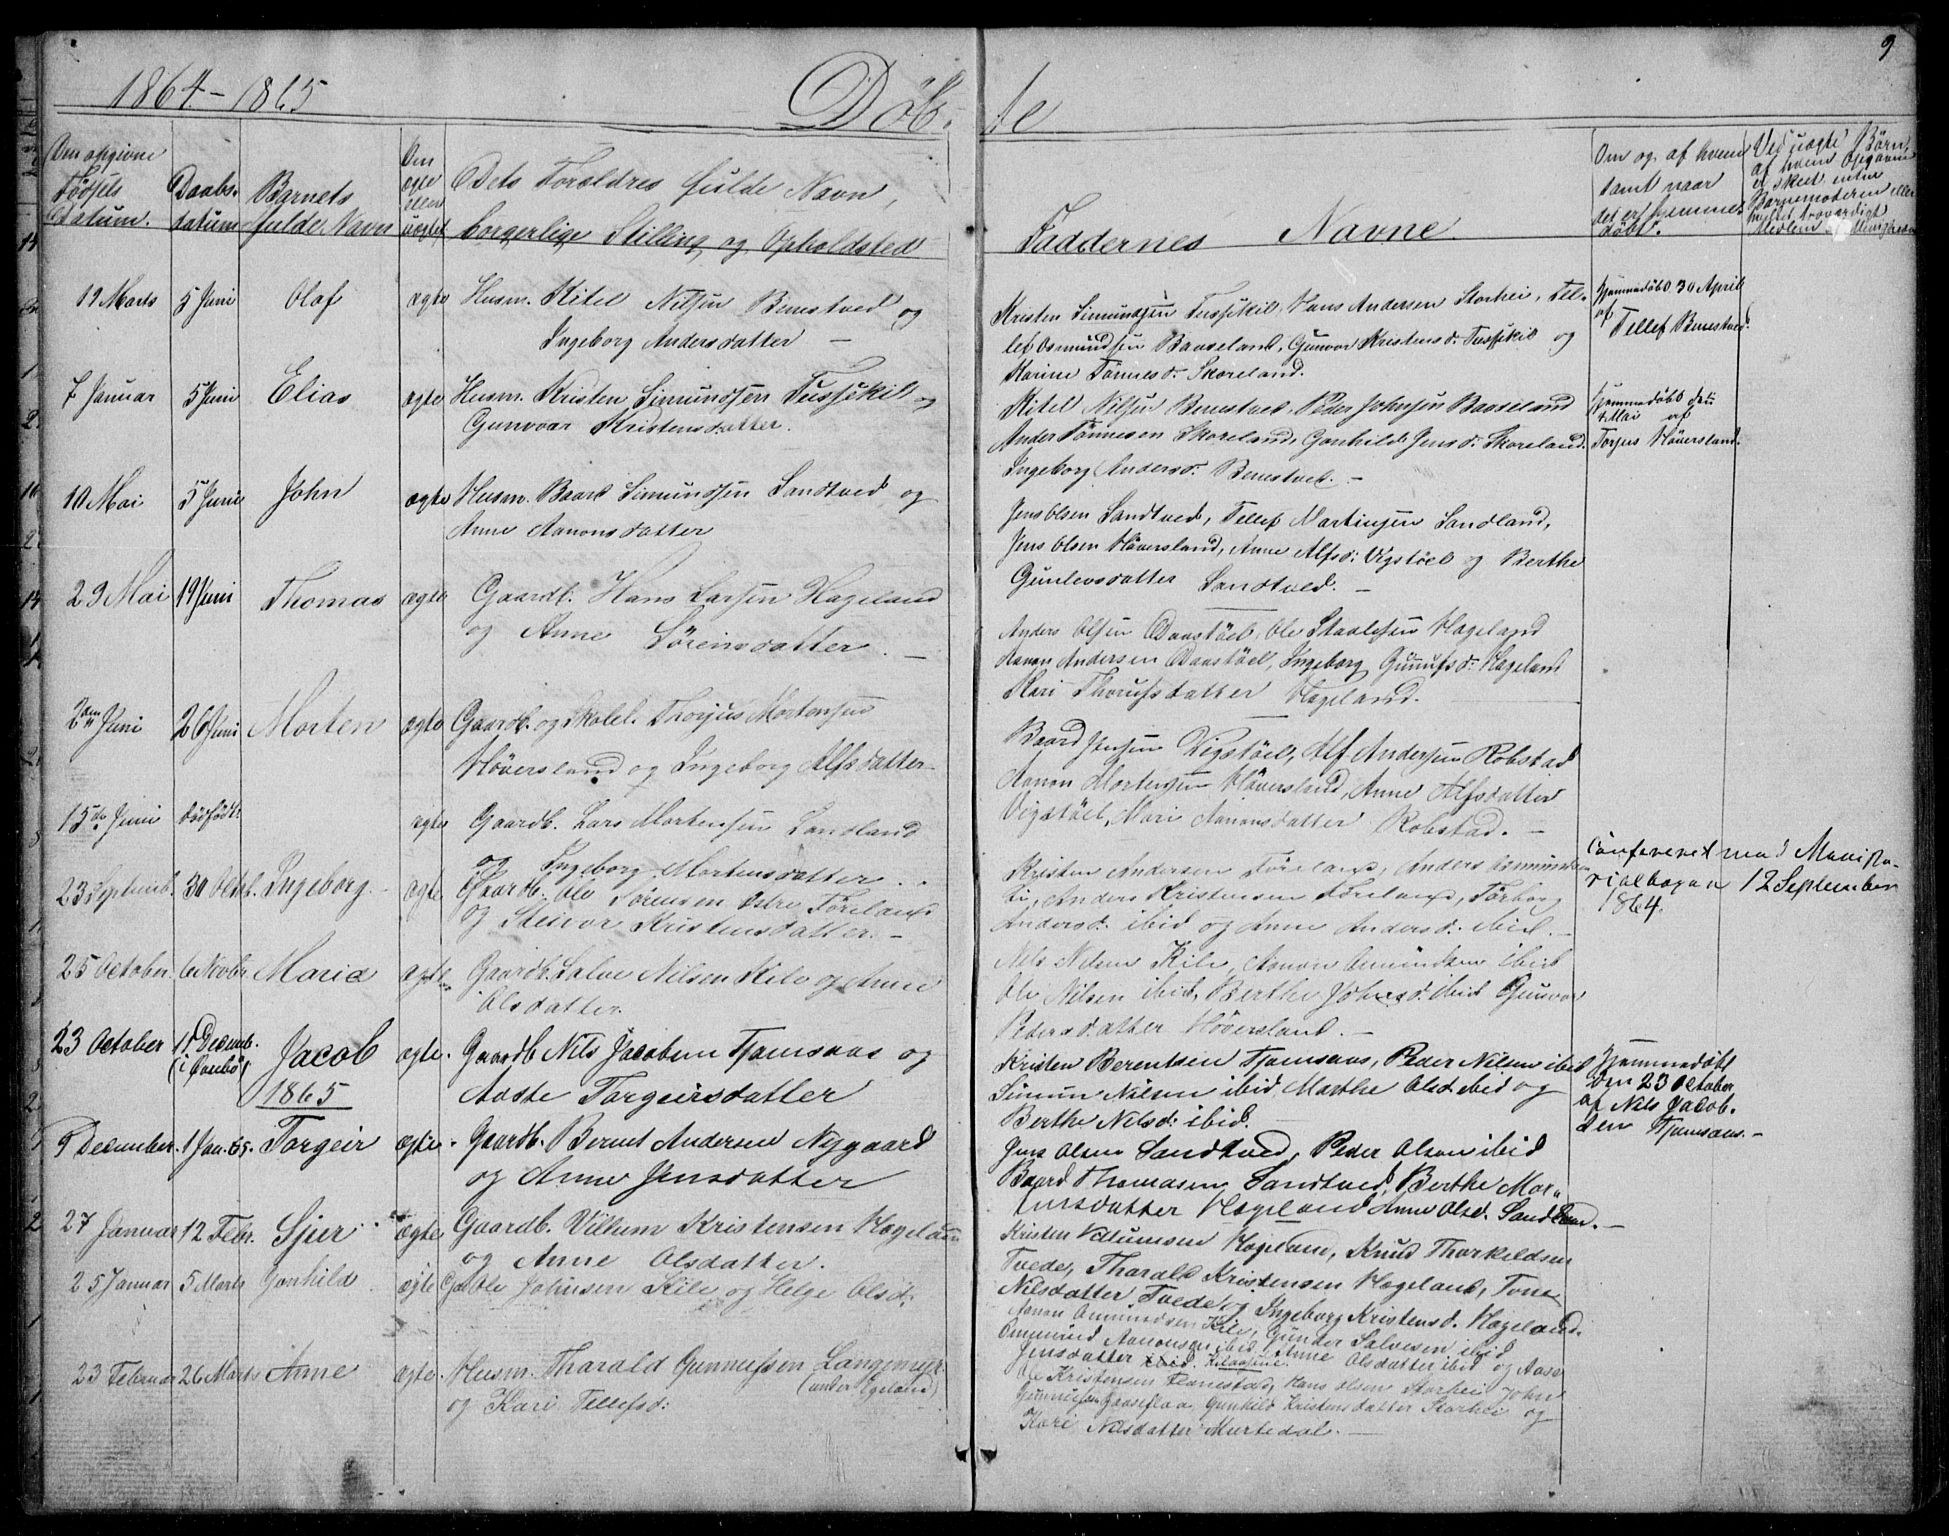 9
1864-1865 Døb- te
Den opgivne Fødsels Datum.
Daabs- datum
Barnets fulde Navn
Om ægte eller uægte
Dets Forældres fulde Navn, borgerlige Stilling og Opholdsted
Faddernes Navne
Om og af hvem samt naar det er hjemme- døbt.
Ved uægte Børn, af hvem Opgivne er skeet enten Barnemoderen eller
19 Marts 5 Juni Olaf ægte Husm. Kitel Nilsen Benestved og
Ingeborg Andersdatter –
Kristen Simundsen Fussikil, Hans Andersen Storhei, Tel-
lef Osmundsen Baaseland, Gunvor Kristensd. Fussikil og
Karine Tønnesd. Skoreland.
Hjemmedøbt 30 April
af Tellef Benestved.
7 Januar 5 Juni Elias ægte Husm. Kristen Simundsen Fussikil og
Gunvoar Kristensdatter.
Kitel Nilsen Benestved, Peder Johnsen Baaseland
Ander Tønnesen Skoreland, Gonhild Jensd. Skoreland.
Ingeborg Andersd. Benestved. –
Hjemmedøbt den
Mai af
Torjus Høversland.
10 Mai 5 Juni John ægte Husm. Baard Simundsen Sandtved og
Anne Aanonsdatter
Jens Olsen Sandtved, Tellef Martinsen Sandland,
Jens Olsen Høversland, Anne Alfsd. Vigstøel og Berthe
Gunlevsdatter Sandtved. –
23 Mai 19 Juni Thomas ægte Gaardb. Hans Larsen Hageland
og Anne Sörensdatter. –
Anders Olsen Daastøel, Ole Staalesen Hageland
Aanon Andersen Daastøel, Ingeborg Gunufsd. Hageland
Kari Thorufsdatter Hageland.
2den Juni 26 Juni Morten ægte Gaardb. og Skolel. Thorjus Mortensen
Høversland og Ingeborg Alfsdatter
Baard Jensen Vigstøel, Alf Andersen Robstad
Aanon Mortensen Høversland, Anne Alfsdatter
Vigstøel, Mari Aanonsdatter Robstad. –
15de Juni Dødfødt ægte Gaardb. Lars Mortensen Sandland
og Ingeborg Mortensdatter.
Confereret med Ministe-
rialbogen 12 September
1864.
23 Septemb. 30 Octbl. Ingeborg ægte Gaardb. Ole Sørensen Østre Føreland
og Steinor Kristensdatter. –
Kristen Andersen Føreland, Anders Osmundsen
ib, Anders Kristensen Føreland, Torborg
Andersd. ibid og Anne Andersd. ibid. –
25 October. 6 Novbr. Maria ægte Gaardb. Salve Nilsen Kile og Anne
Olsdatter.
Nels Nelsen Kile, Aanon Omundsen ibid
Ole Nilsen ibid, Berthe Johnsd. ibid Gunvor
Pedersdatter Høversland. –
23 October 11 Decemb. (i Øvrebø) Jacob ægte. Gaardb Nils Jacobsen Tjomsaas og
Aaste Torgeirsdatter
Kristen Berentsen Tjomsaas, Peder Nilsen ibid
Simun Nilsen ibid, Marthe Olsd ibid og
Berthe Nilsd. ibid.
Hjemmedøbt
den 23 October
af Nils Jacob-
sen Tjomsaas. –
1865
9 December. 1 Jan. 65. Torgeir ægte. Gaardb. Bernt Andersen Nygaard
og Anne Jensdatter
Jens Olsen Sandtved, Peder Olsen ibid
Baard Thomasen Sandtved, Berthe Mor-
tensdatter Hageland Anne Olsd. Sandland. –
27 Januar 12 Febr. Sjur ægte Gaardb. Villum Kristensen Hageland
og Anne Olsdatter.
Kristen Villumsen Hageland, Knud Thorkildsen
Tvede, Tharald Kristensen Hageland, Tone
Nilsdatter Tvede og Ingeborg Kristensd. Hageland.
25 Januar 5 Marts Gonhild ægte Gb Ole Johnsen Kile og Helge Olsd.
Aanon Omundsen Kile, Gunder Salvesen ibid
Ommund Aanonsen ibid, Anne Olsdatter ibid og Aase
Jensdatter ibid.
23 Februar 26 Marts Anne ægte. Husm. Tharald Gunnufsen Langemyr
(under Egeland)
og Kari Tellefsd.
Ole Kristensen Flanestad, Hans Olsen Storhei John
Gunnufsen Gaaseflaa Gunhild Kristensdatter Storhei og
Kari Nilsdatter Murtedal. –